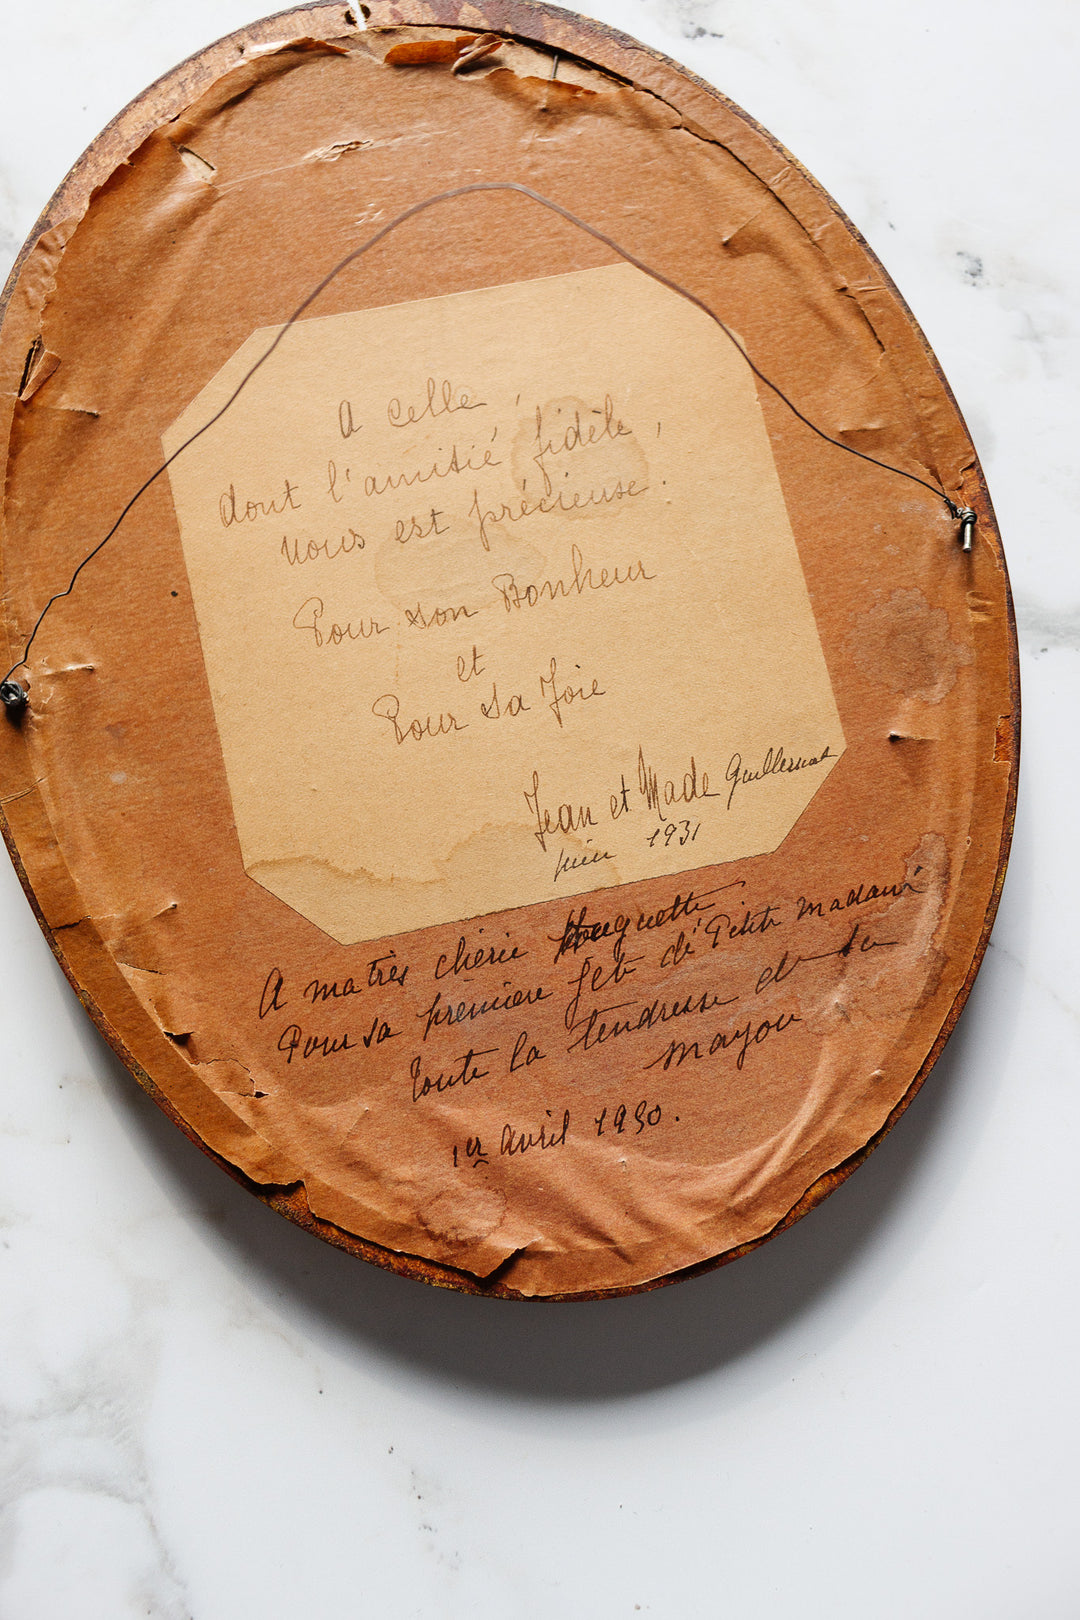 A celle,
dont l'amitié fidèle,
nous est précieuse.
Pour son Bonheur
et
Pour sa Joie
Jean et Made
juin 1931
A ma très chérie Huguette
Pour sa première fête de Petite madame
toute la tendresse de sa
mayou
1er Avril 1950.